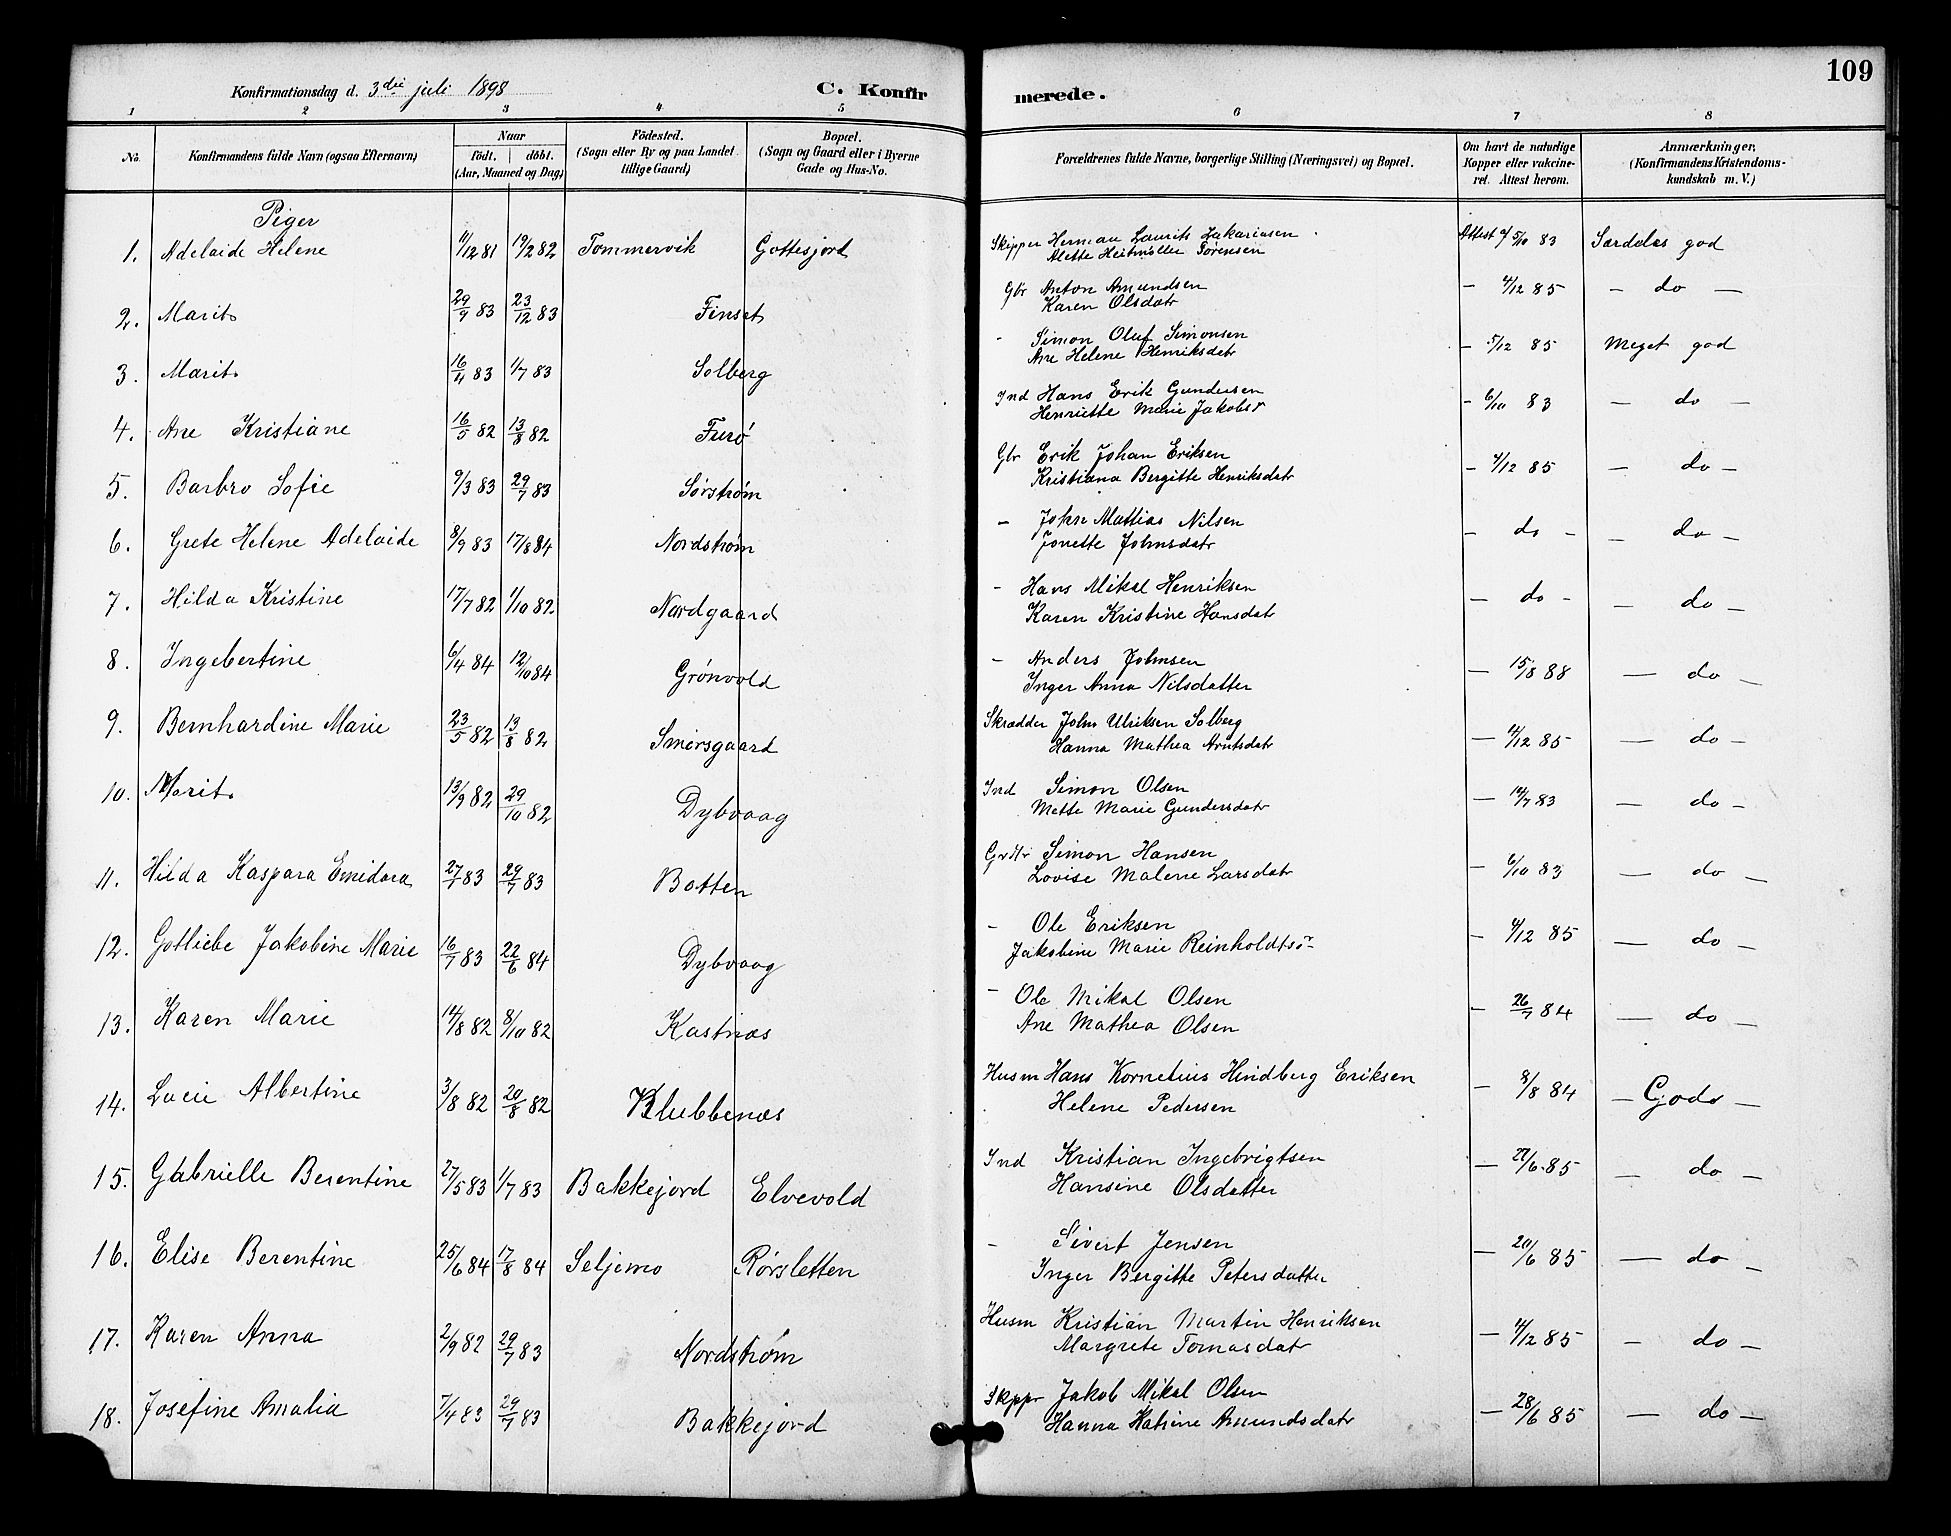 109
Konfirmationsdag d. 3die juli 1898 C. Konfirmerede.
1 2 3 4 5 6 7 8
No. Konfirmandens fulde Navn (ogsaa Efternavn) Naar födt. döbt. (Aar, Maaned og Dag) Födested. (Sogn eller By og paa Landet tillige Gaard) Bopæl. (Sogn og Gaard eller i Byerne Gade og Hus-No. Forældrenes fulde Navne, borgerlige Stilling (Næringsvei) og Bopæl. Om havt de naturlige Kopper eller vakcineret. Attest herom. Anmærkninger, (Konfirmandens Kristendomskundskab m. V.)
Piger
1. Adelaide Helene 11/12 81 19/2 82 Tommervik Gottesjord Skipper Herman Laurits Zakariasen Attest af 5/10 83 Særdeles god
Alette Heitmøller Sørensen
2. Marit 29/9 83 23/12 83 Finset Gbr Anton Amundsen - 4/12 85 - do -
Karen Olsdatr
3. Marit 16/4 83 1/7 83 Solberg - Simon Oluf Simonsen - 5/12 85 Meget god
Ane Helene Henriksdatr
4. Ane Kristiane 16/5 82 13/8 82 Furø Ind Hans Erik Gundersen - 6/10 83 - do -
Henriette Marie Jakobsr
5. Barbro Sofie 9/3 83 29/7 83 Sørstrøm Gbr Erik Johan Eriksen - 4/12 85 - do -
Kristiana Bergitte Henriksdatr
6. Grete Helene Adelaide 8/9 83 17/8 84 Nordstrøm - John Mattias Nilsen - do - - do -
Jonette Johnsdatr
7. Hilda Kristine 17/7 82 1/10 82 Nordgaard - Hans Mikal Henriksen - do - - do -
Karen Kristine Hansdatr
8. Ingebertine 6/4 84 12/10 84 Grönvold - Anders Johnsen - 15/8 88 - do -
Inger Anna Nilsdatter
9. Bernhardine Marie 23/5 82 13/8 82 Smørsgaard Skrædder John Ulriksen Solberg - 4/12 85 - do -
Hanna Mathea Arntsdatr
10. Marit 13/9 82 29/10 82 Dybvaag Ind Simon Olsen - 14/7 83 - do -
Mette Marie Gundersdatr
11. Hilda Kaspara 27/1 83 29/7 83 Botten Simon Hansen - 6/10 83 - do -
Lovise Malene Larsdatr
12. Gotliebe Jakobine Marie 16/7 83 22/6 84 Dybvaag - Ole Eriksen - 4/12 85 - do -
Jakobine Marie Reinholdtsd-
13. Karen Marie 14/8 82 8/10 82 Kastnæs - Ole Mikal Olsen - 26/7 84 - do -
Ane Mathea Olsen
14. Lucie Albertine 3/8 82 20/8 82 Klubbenæs Husm Hans Kornelius Hindberg Eriksen - 8/8 84 - Godt -
Helene Pedersen
15. Gabrielle Berentine 27/5 83 1/7 83 Bakkejord Elvevold Ind Kristian Ingebrigtsen - 27/6 85 - do -
Hansine Olsdatter
16. Elise Berentine 25/6 84 17/8 84 Seljemo Rørsletten - Sivert Jensen - 20/6 85 - do -
Inger Bergitte Petersdatter
17. Karen Anna 2/9 82 29/7 83 Nordstrøm Husm Kristian Martin Henriksen - 4/12 85 - do -
Margrete Tomasdatr
18. Josefine Amalia 7/4 83 29/7 83 Bakkejord Skppr Jakob Mikal Olsen - 28/6 85 - do -
Hanna Katrine Amundsdatr